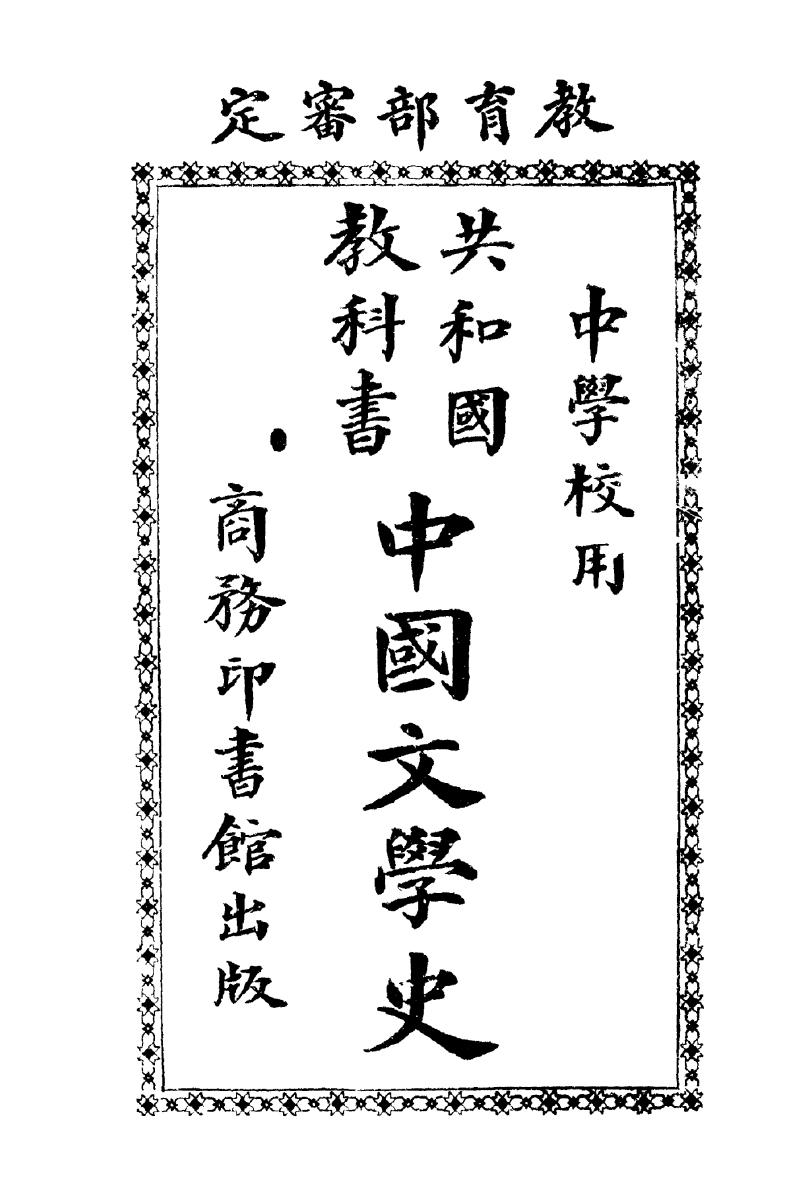 教育部審定
中學校用
共和國
教科書
中國文學史
商務印書館出版